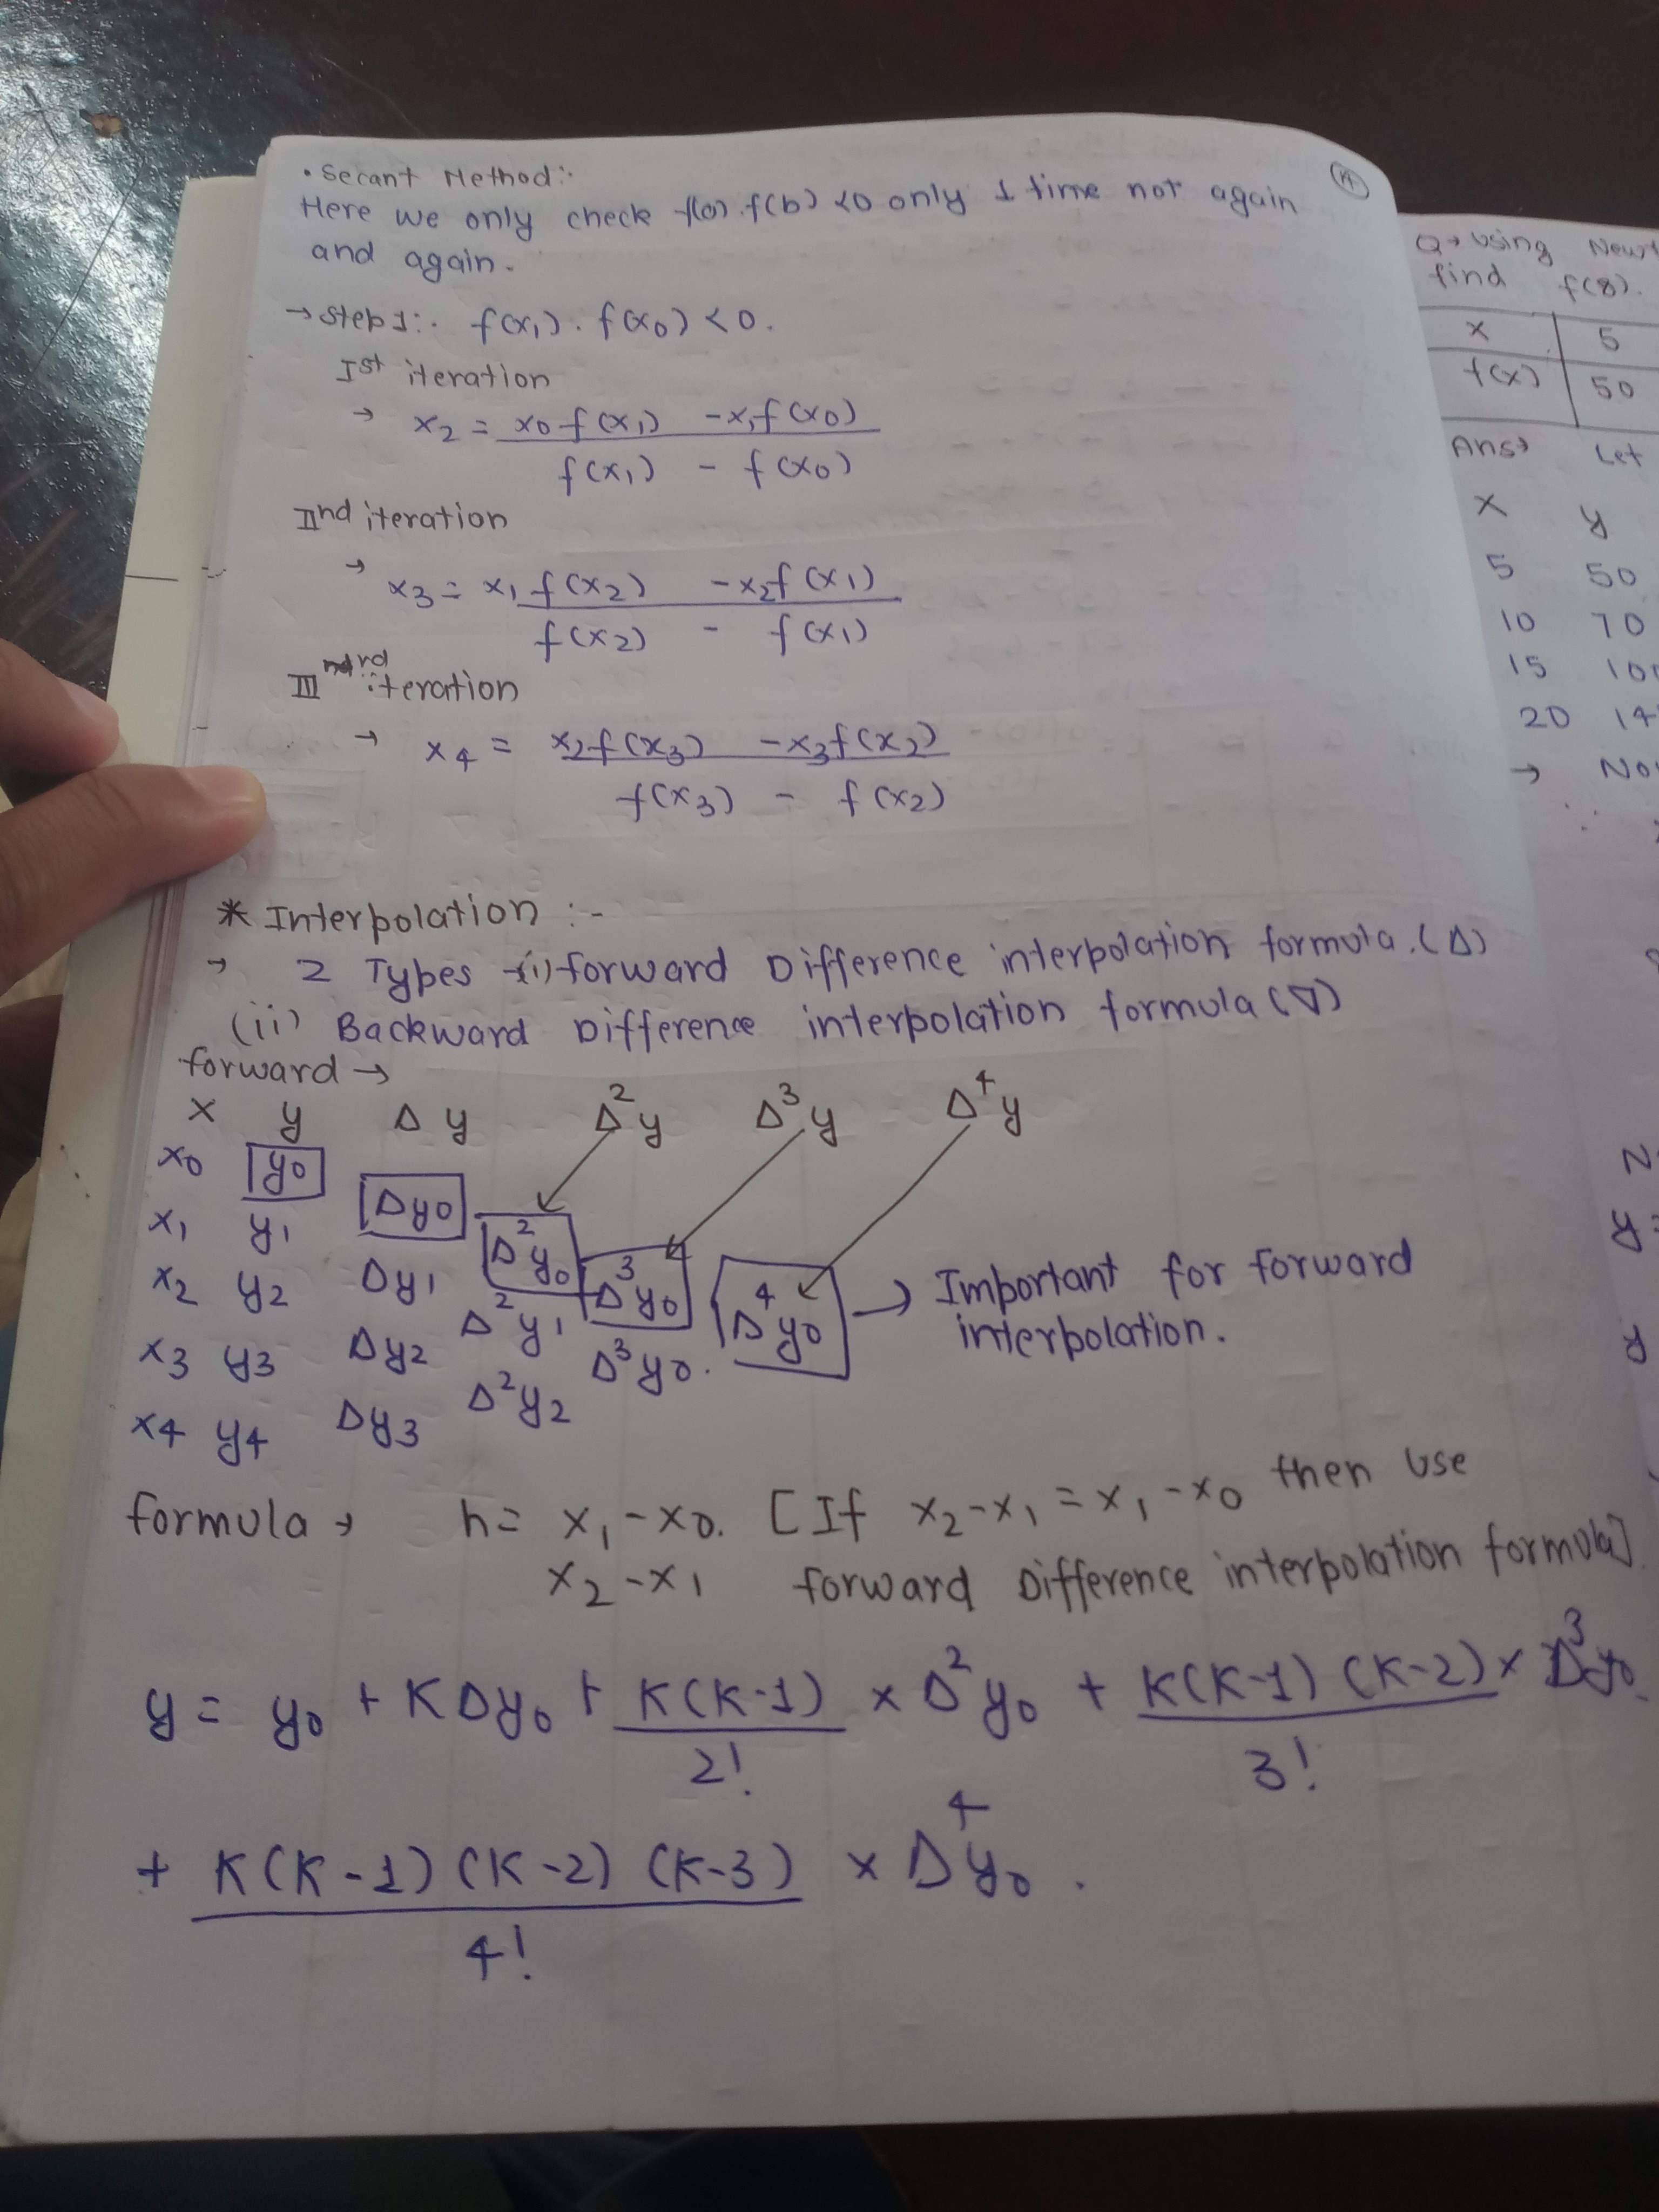 • Secant Method:-
Here we only check f(a).f(b) <0 only 1 time not again
and again.
→ Step 1:- f(x₁). f(x₀) < 0.
Ist iteration
→ x₂ = x₀ f(x₁) - x₁f(x₀)
f(x₁) - f(x₀)
IInd iteration
→ x₃ = x₁ f(x₂) - x₂f(x₁)
f(x₂) - f(x₁)
IIIrd iteration
→ x₄ = x₂f(x₃) - x₃f(x₂)
f(x₃) - f(x₂)
* Interpolation :-
→ 2 Types → (i) forward Difference interpolation formula. (Δ)
(ii) Backward Difference interpolation formula (∇)
forward →
x y Δy Δ²y Δ³y Δ⁴y
x₀ y₀
Δy₀
x₁ y₁ Δ²y₀
x₂ y₂ Δy₁ Δ³y₀ Δ⁴y₀ → Important for forward
Δ²y₁ interpolation.
x₃ y₃ Δy₂ Δ³y₀.
Δ²y₂
x₄ y₄ Δy₃
formula → h = x₁ - x₀. [If x₂ - x₁ = x₁ - x₀ then use
x₂ - x₁ forward Difference interpolation formula].
y = y₀ + KΔy₀ + K(K-1) × Δ²y₀ + K(K-1) (K-2) × Δ³y₀
2! 3!
+ K(K-1) (K-2) (K-3) × Δ⁴y₀.
4!
Q→ Using
find f(8).
x 5
f(x) 50
Ans→ Let
x y
5 50
10 70
15
20
→
y =
y